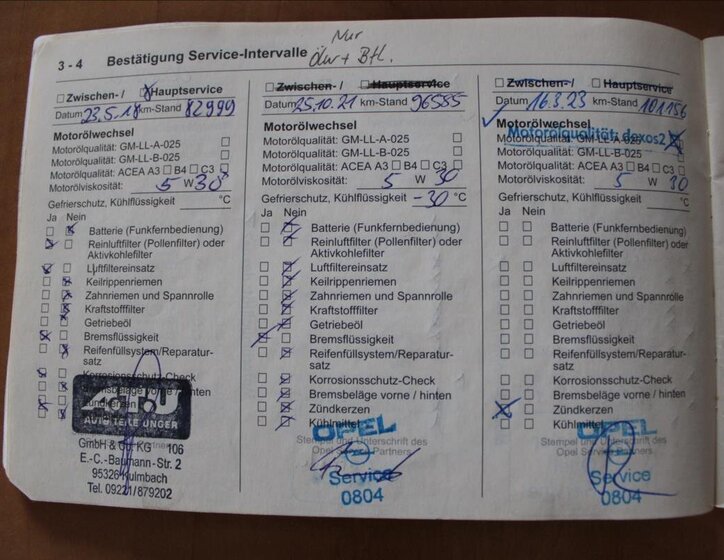 3 - 4 Bestätigung Service-Intervalle
Nur
Ölw + Bfl.
Zwischen- / Hauptservice
Datum 23.5.18 km-Stand 82999
Motorölwechsel
Motorölqualität: GM-LL-A-025
Motorölqualität: GM-LL-B-025
Motorölqualität: ACEA A3 B4 C3
Motorölviskosität: 5 W 30
Gefrierschutz, Kühlflüssigkeit °C
Ja Nein
Batterie (Funkfernbedienung)
Reinluftfilter (Pollenfilter) oder
Aktivkohlefilter
Luftfiltereinsatz
Keilrippenriemen
Zahnriemen und Spannrolle
Kraftstofffilter
Getriebeöl
Bremsflüssigkeit
Reifenfüllsystem/Reparatur-
satz
Korrosionsschutz-Check
Bremsbeläge vorne / hinten
Zündkerzen
AUTOTEILE UNGER
GmbH & Co. KG 106
E.-C.-Baumann-Str. 2
95326 Kulmbach
Tel. 09221/879202
Zwischen- / Hauptservice
Datum 25.10.21 km-Stand 96585
Motorölwechsel
Motorölqualität: GM-LL-A-025
Motorölqualität: GM-LL-B-025
Motorölqualität: ACEA A3 B4 C3
Motorölviskosität: 5 W 30
Gefrierschutz, Kühlflüssigkeit -30 °C
Ja Nein
Batterie (Funkfernbedienung)
Reinluftfilter (Pollenfilter) oder
Aktivkohlefilter
Luftfiltereinsatz
Keilrippenriemen
Zahnriemen und Spannrolle
Kraftstofffilter
Getriebeöl
Bremsflüssigkeit
Reifenfüllsystem/Reparatur-
satz
Korrosionsschutz-Check
Bremsbeläge vorne / hinten
Zündkerzen
Kühlmittel
OPEL
Stempel und Unterschrift des
Opel Service Partners
Service
0804
Zwischen- / Hauptservice
Datum 16.3.23 km-Stand 101156
Motorölwechsel
Motorölqualität: dexos2
Motorölqualität: GM-LL-A-025
Motorölqualität: GM-LL-B-025
Motorölqualität: ACEA A3 B4 C3
Motorölviskosität: 5 W 30
Gefrierschutz, Kühlflüssigkeit °C
Ja Nein
Batterie (Funkfernbedienung)
Reinluftfilter (Pollenfilter) oder
Aktivkohlefilter
Luftfiltereinsatz
Keilrippenriemen
Zahnriemen und Spannrolle
Kraftstofffilter
Getriebeöl
Bremsflüssigkeit
Reifenfüllsystem/Reparatur-
satz
Korrosionsschutz-Check
Bremsbeläge vorne / hinten
Zündkerzen
Kühlmittel
OPEL
Stempel und Unterschrift des
Opel Service Partners
Service
0804